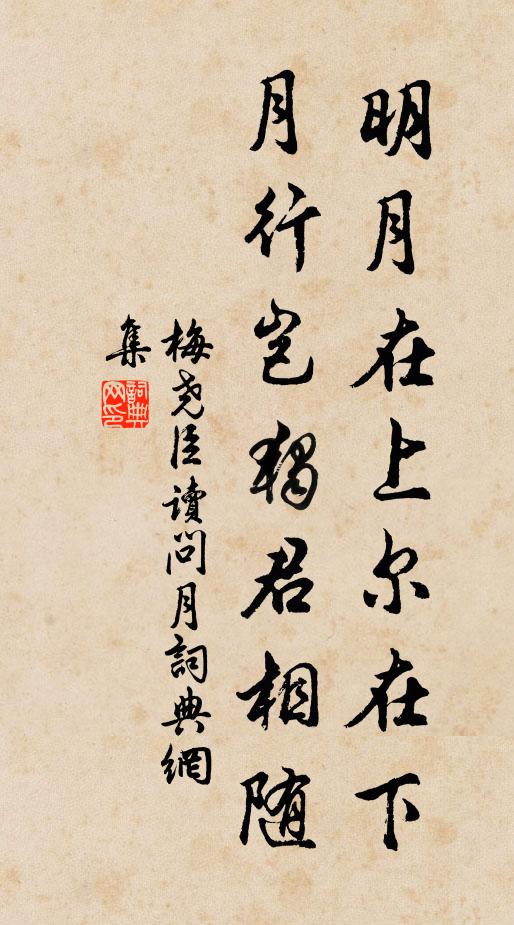 明月在上尔在下
月行岂独君相随
梅尧臣讀问月詞典網
集
詞典
网印